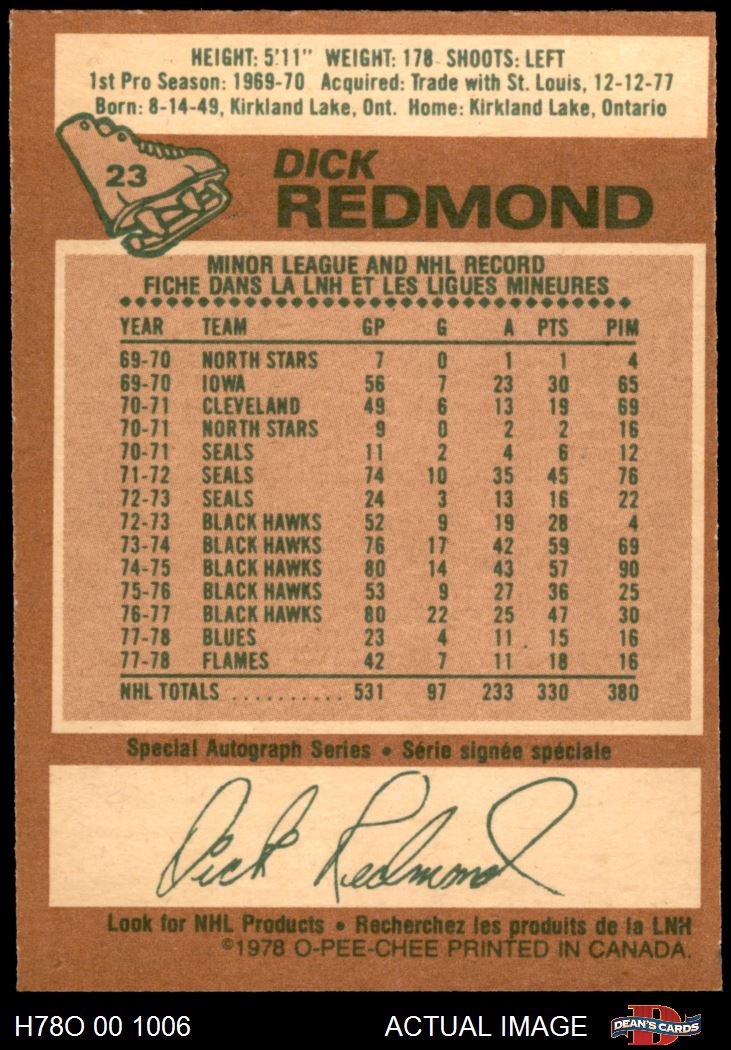 HEIGHT: 5'11" WEIGHT: 178 SHOOTS: LEFT
1st Pro Season: 1969-70 Acquired: Trade with St. Louis, 12-12-77
Born: 8-14-49, Kirkland Lake, Ont. Home: Kirkland Lake, Ontario
23
DICK
REDMOND
MINOR LEAGUE AND NHL RECORD
FICHE DANS LA LNH ET LES LIGUES MINEURES
YEAR TEAM GP G A PTS PIM
69-70 NORTH STARS 7 0 1 1 4
69-70 IOWA 56 7 23 30 65
70-71 CLEVELAND 49 6 13 19 69
70-71 NORTH STARS 9 0 2 2 16
70-71 SEALS 11 2 4 6 12
71-72 SEALS 74 10 35 45 76
72-73 SEALS 24 3 13 16 22
72-73 BLACK HAWKS 52 9 19 28 4
73-74 BLACK HAWKS 76 17 42 59 69
74-75 BLACK HAWKS 80 14 43 57 90
75-76 BLACK HAWKS 53 9 27 36 25
76-77 BLACK HAWKS 80 22 25 47 30
77-78 BLUES 23 4 11 15 16
77-78 FLAMES 42 7 11 18 16
NHL TOTALS .......... 531 97 233 330 380
Special Autograph Series • Série signée spéciale
Dick Redmond
Look for NHL Products • Recherchez les produits de la LNH
©1978 O-PEE-CHEE PRINTED IN CANADA.
H78O 00 1006 ACTUAL IMAGE D DEAN'S CARDS